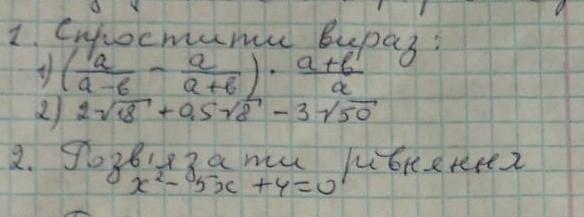 1. Спростити вираз:
1) (a/(a-b) - a/(a+b)) · (a+b)/a
2) 2√18 + 0,5√8 - 3√50
2. Розв'язати рівняння
x² - 5x + 4 = 0